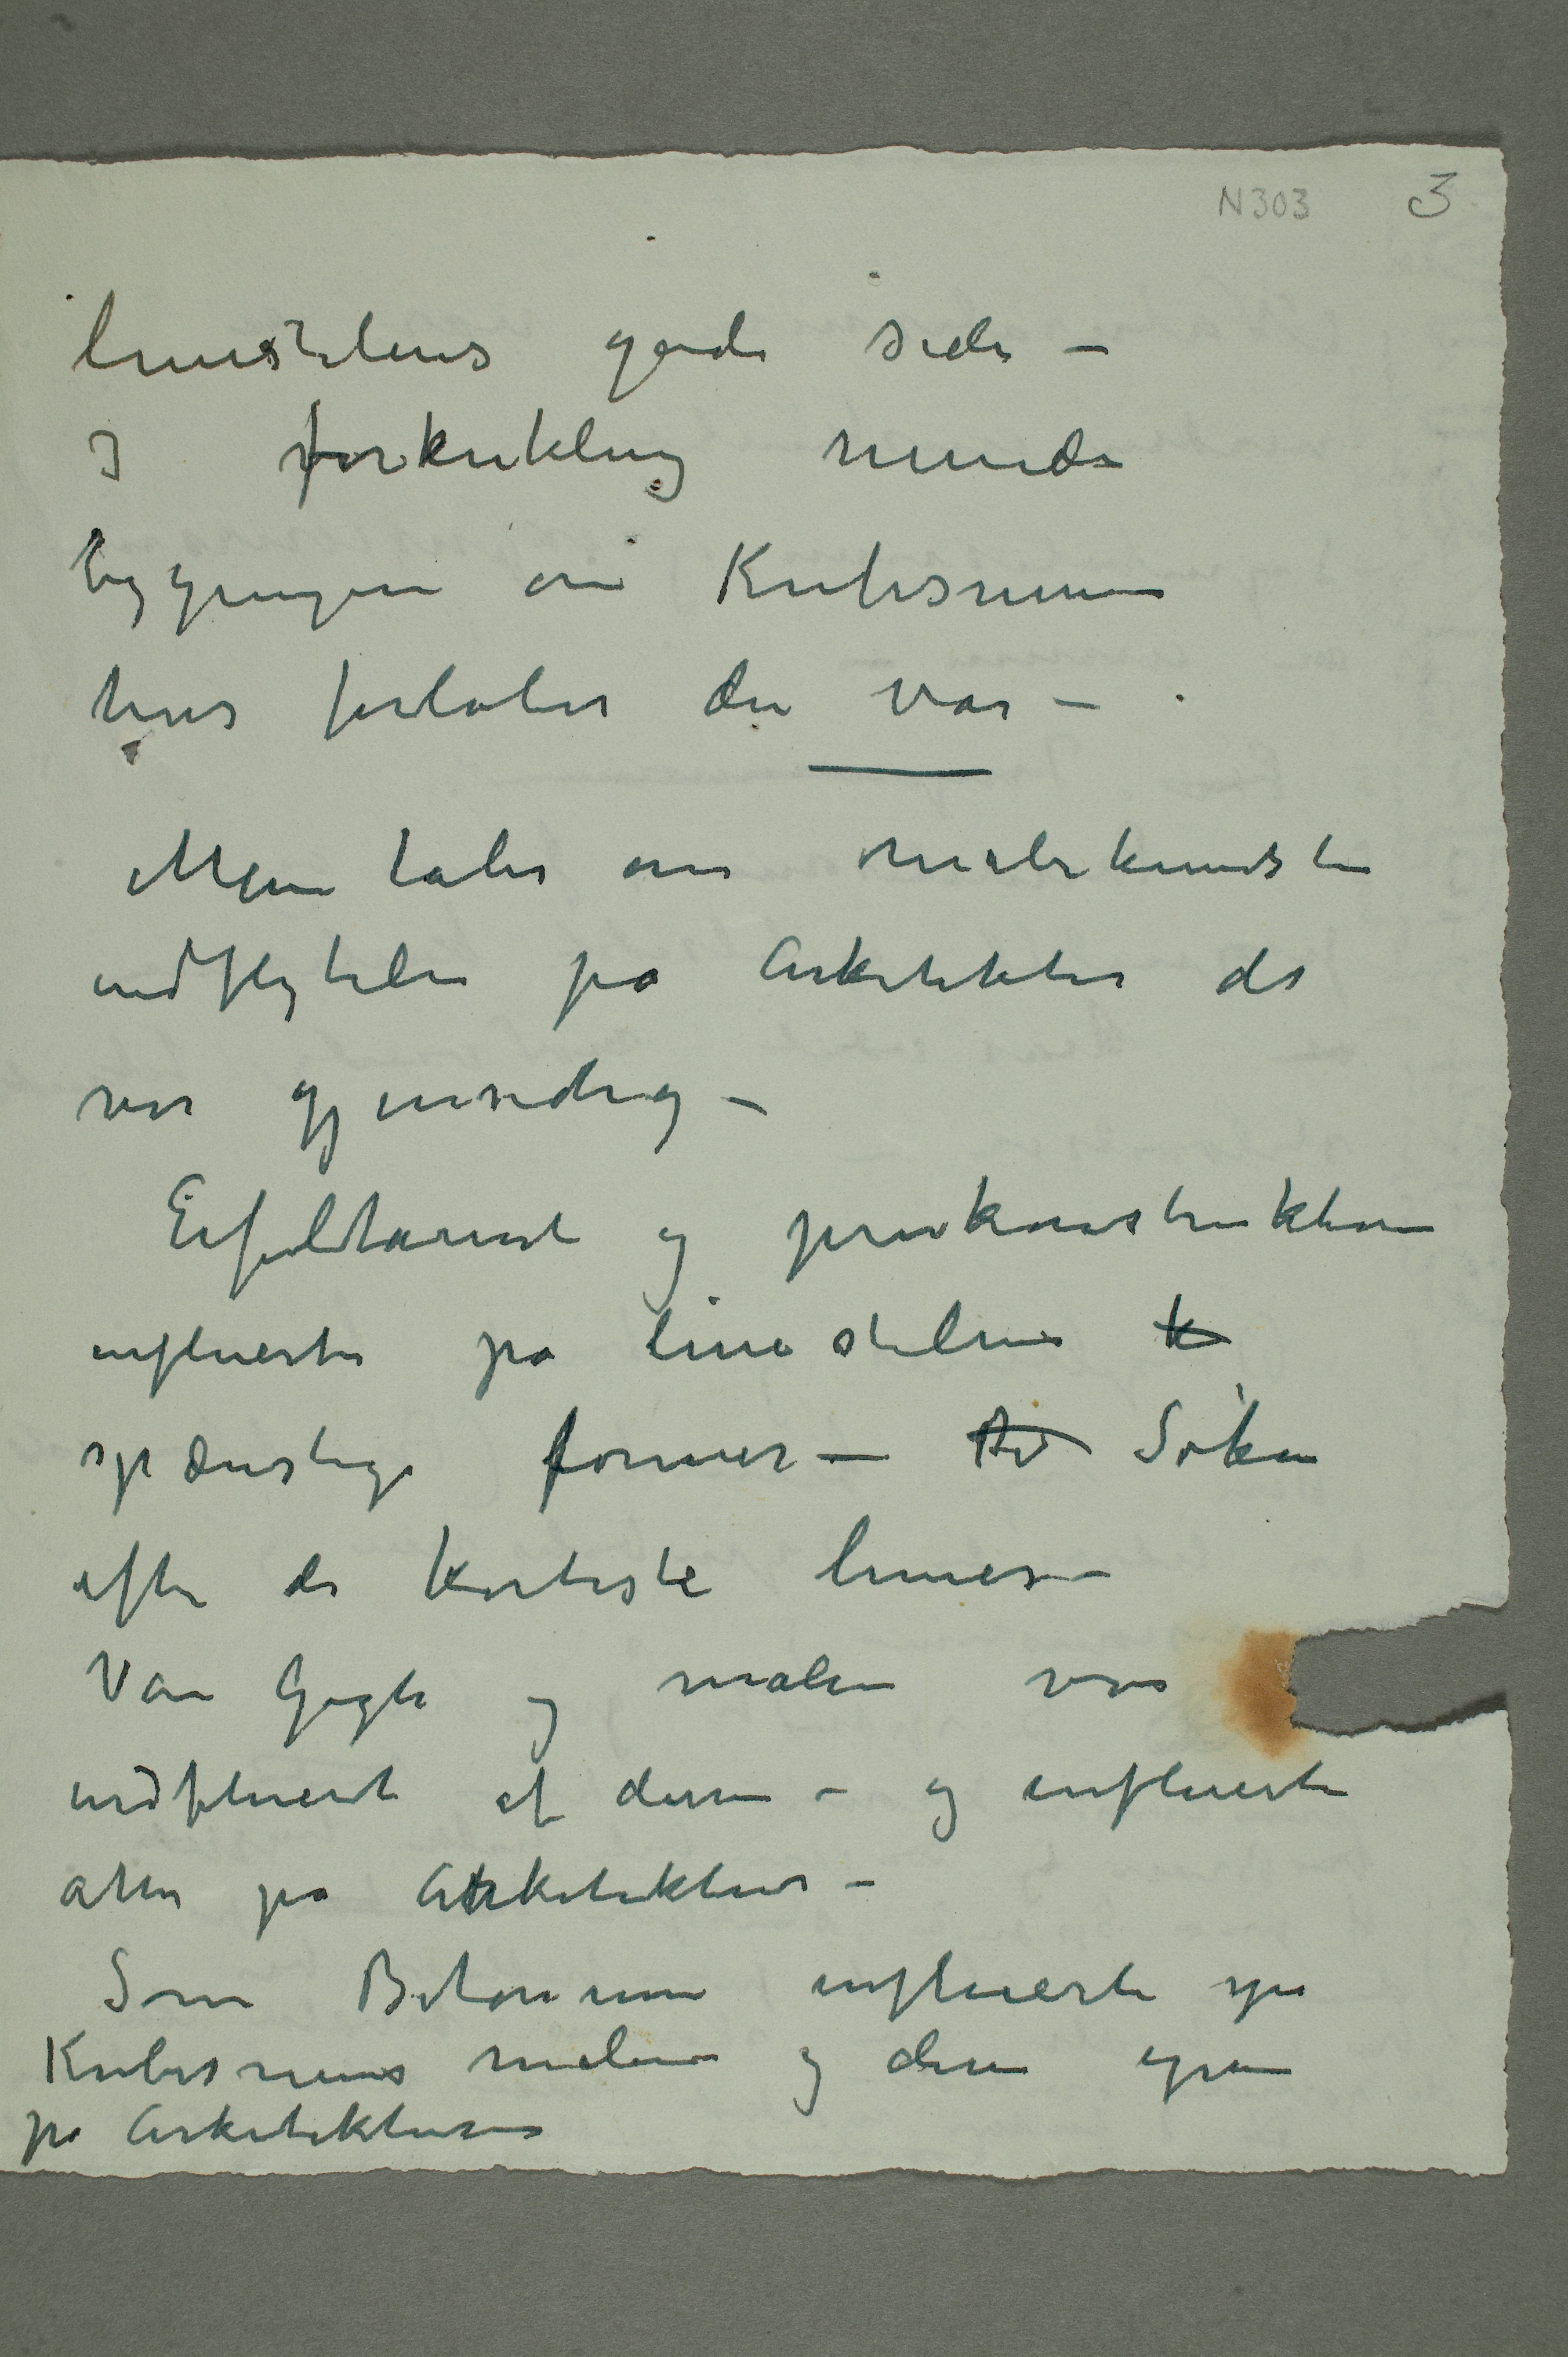 N303 3
liniestilens gode sider –
I forkrukling minder
bygningen om Kubismen
hvis forløber den var –
Man taler om malerkunsten
indflytelse på Arkitekter det
var gjensidig –
Eifeltårnet og jernkonstruktion
influerte på liniestilens
spænstige former – Søken
efter de korteste linier –
Van Gogh og malere var
indfluert af denne – og influerte
atter på Arkitektur –
Som Betonen influerte på
Kubismens malere og denne igjen
på Arkitekturen